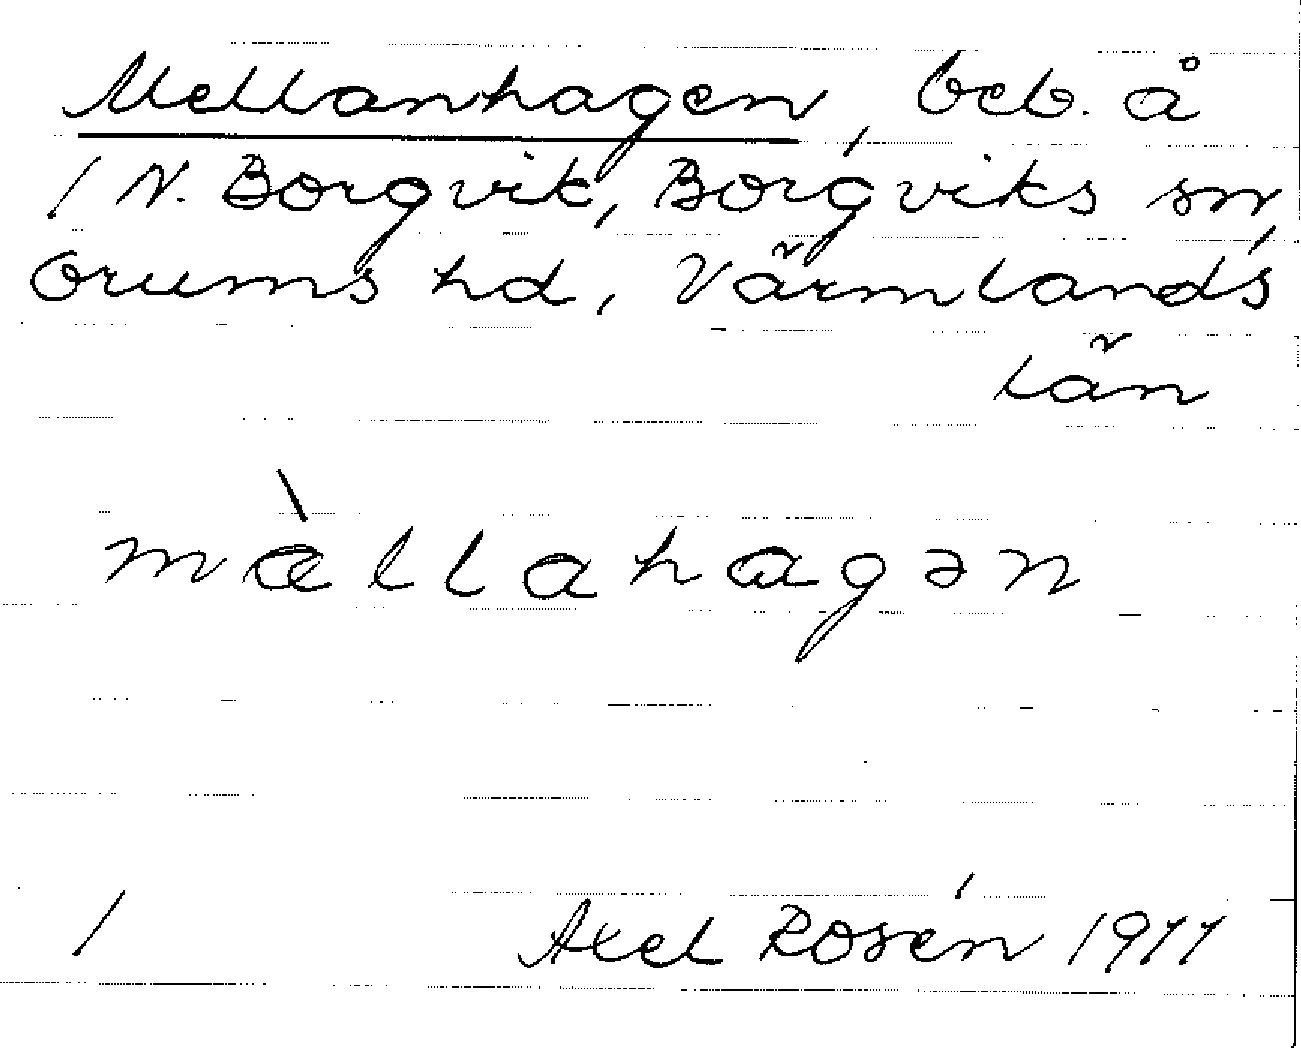 Mellanhagen, beb. å
1 N. Borgvik, Borgviks sn,
Grums hd, Värmlands
län
mæ̀llahagən
1 Axel Rosén 1977